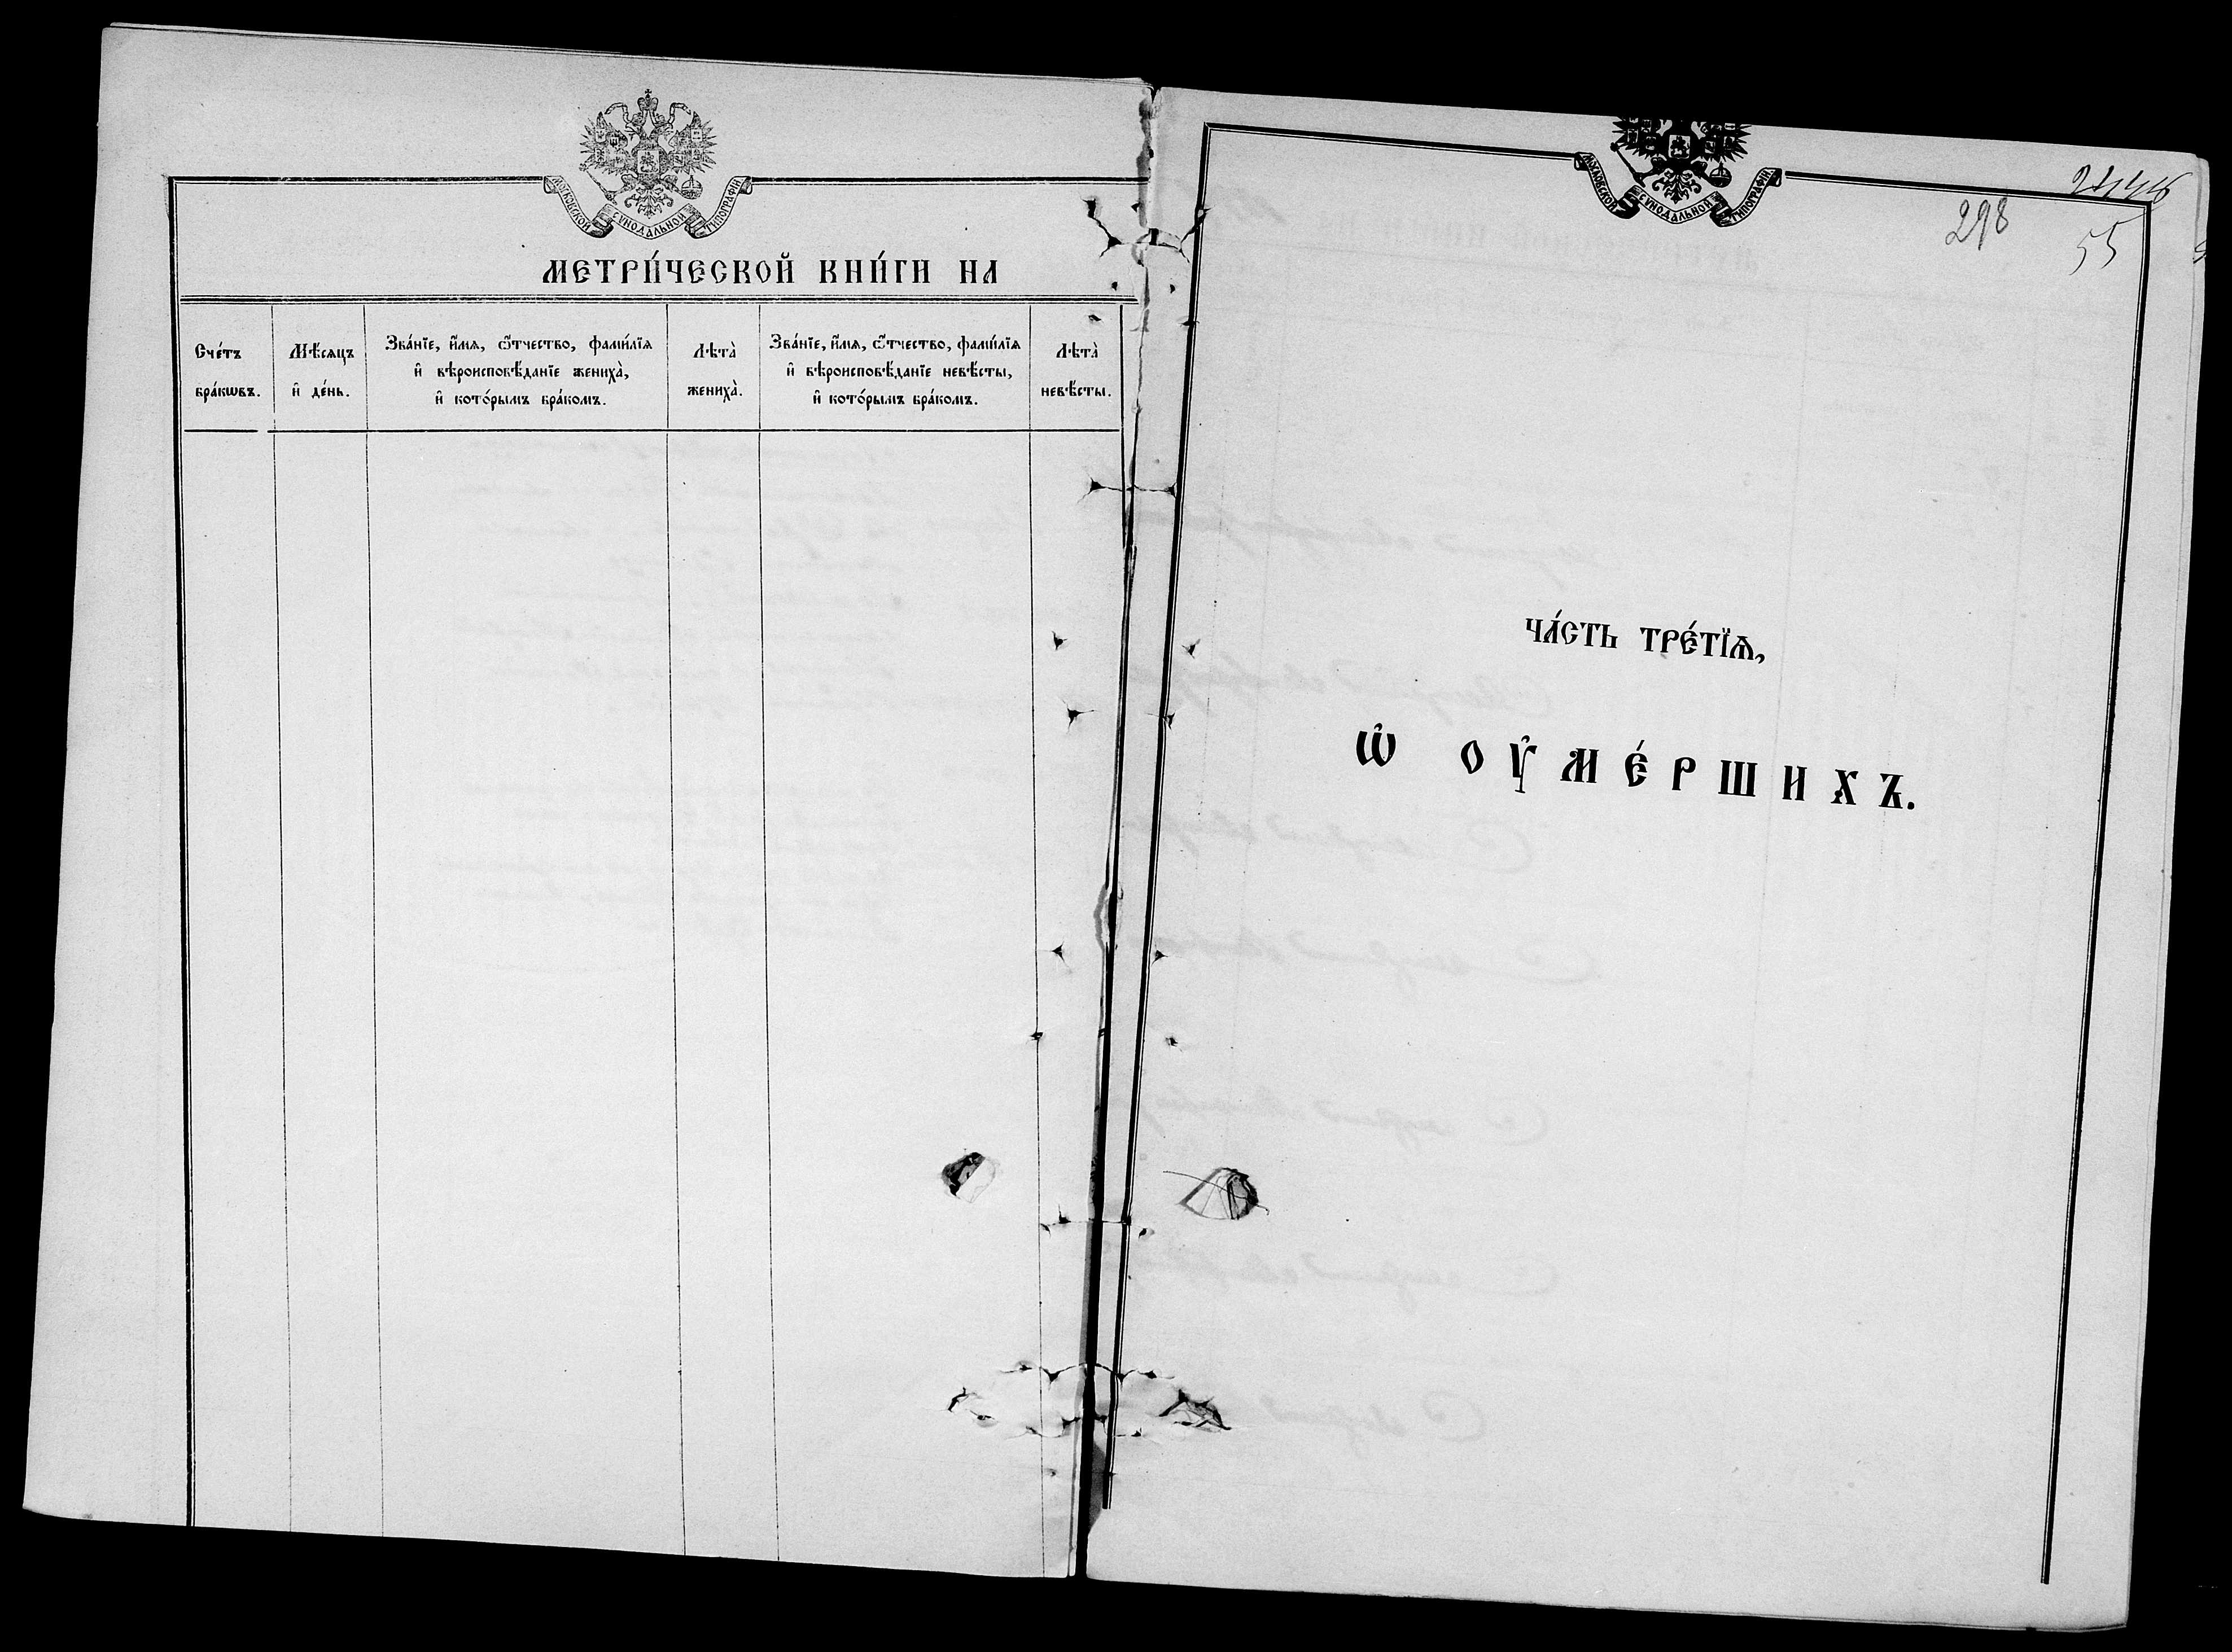 МОСКОВСКОЙ СѴНОДАЛЬНОЙ ТИПОГРАФІИ
МЕТРИ́ЧЕСКОЙ КНИ́ГИ НА
Сче́тъ
бра́кѡвъ.
Мѣ́сѧцъ
и҆ де́нь.
Зва́нїе, и҆́мѧ, ѻ҆́тчество, фамі́лїѧ
и҆ вѣроисповѣ́данїе жениха̀,
и҆ кото́рымъ бра́комъ.
Лѣта̀
жениха̀.
Зва́нїе, и҆́мѧ, ѻ҆́тчество, фамі́лїѧ
и҆ вѣроисповѣ́данїе невѣ́сты,
и҆ кото́рымъ бра́комъ.
Лѣта̀
невѣ́сты.
МОСКОВСКОЙ СѴНОДАЛЬНОЙ ТИПОГРАФІИ
298
55
ЧА́СТЬ ТРЕ́ТЇѦ,
Ѡ҆ ОУ҆МЕ́РШИХЪ.